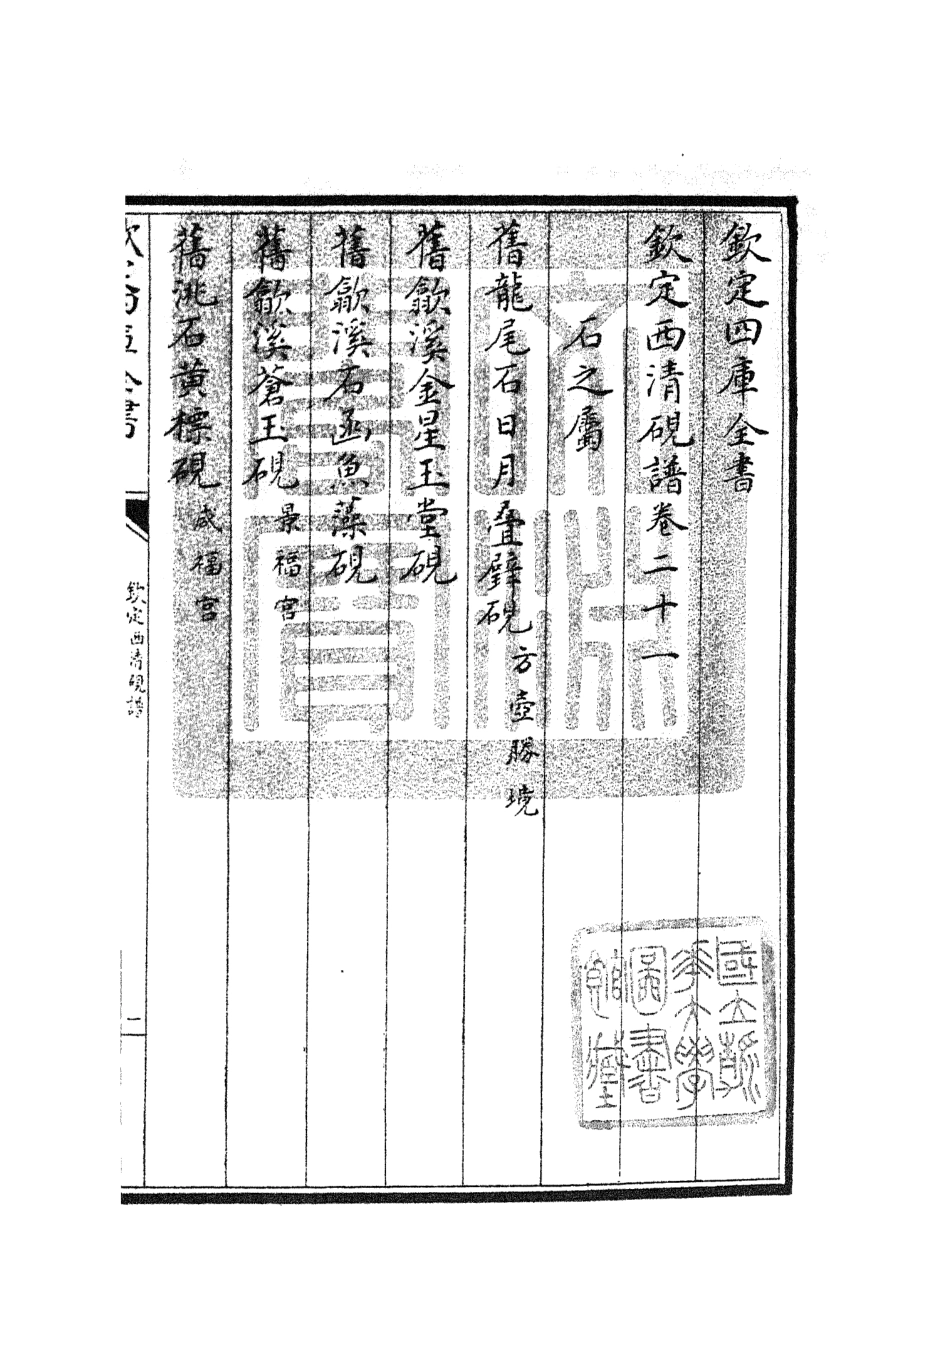 欽定四庫全書
欽定西清硯譜卷二十一
石之屬
舊龍尾石日月疊璧硯 方壺勝境
舊歙溪金星玉堂硯
舊歙溪石函魚藻硯
舊歙溪蒼玉硯 景福宮
舊洮石黄標硯 咸福宮
欽定西清硯譜
一
國立浙江大學圖書館藏